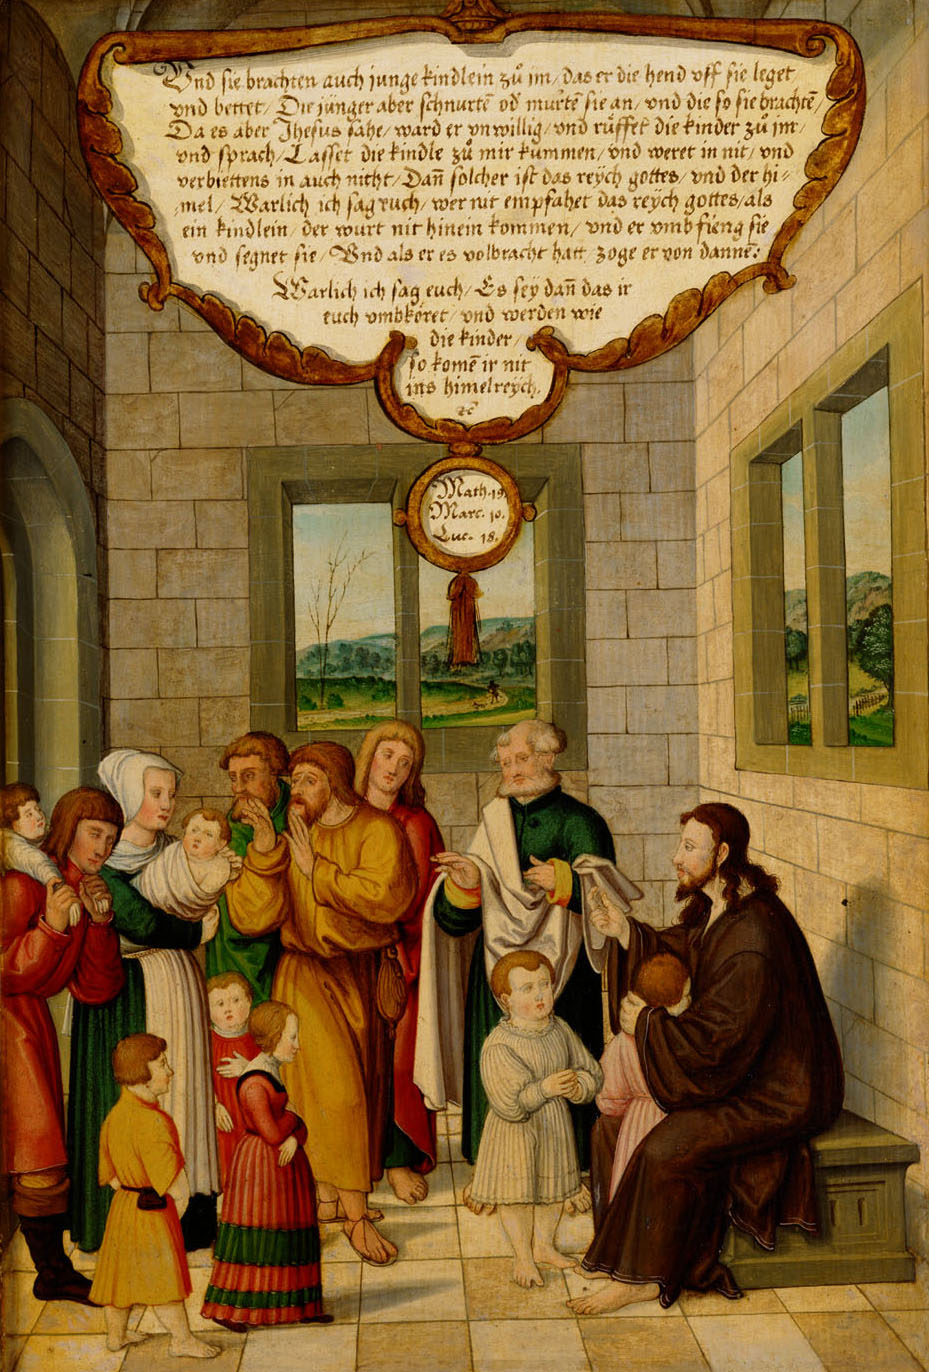 Vnd sie brachten auch junge kindlein zů im, das er die hend vff sie leget,
vnd bettet, Die jünger aber schnurtẽ od̃ murtẽ sie an, vnd die so sie brachtẽ,
Da es aber Jhesus sahe, ward er vnwillig, vnd růffet die kinder zů jm,
vnd sprach, Lasset die kindle zů mir kummen, vnd weret in nit, vnd
verbiettens in auch nitht, Dañ solcher ist das reych gottes, vnd der hi=
mel, Warlich ich sag euch, wer nit empfahet das reych gottes, als
ein kindlein, der wurt nit hinein kommen, vnd er vmbfieng sie
vnd segnet sie, Vnd als er es volbracht hatt, zoge er von dannẽ:
Warlich ich sag euch, Es sey dañ das ir
euch vmbkőret, vnd werden wie
die kinder,
so komẽ ir nit
ins himelreych.
ꝛc
Math. 19.
Marc. 10.
Luc. 18.